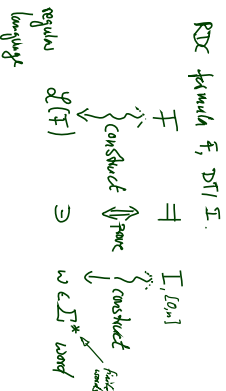 RDC formula F, DTI I.
F ⫤ I, [0,n]
construct ⇕ prove construct
L(F) ∋ w ∈ Σ* word
regular
language